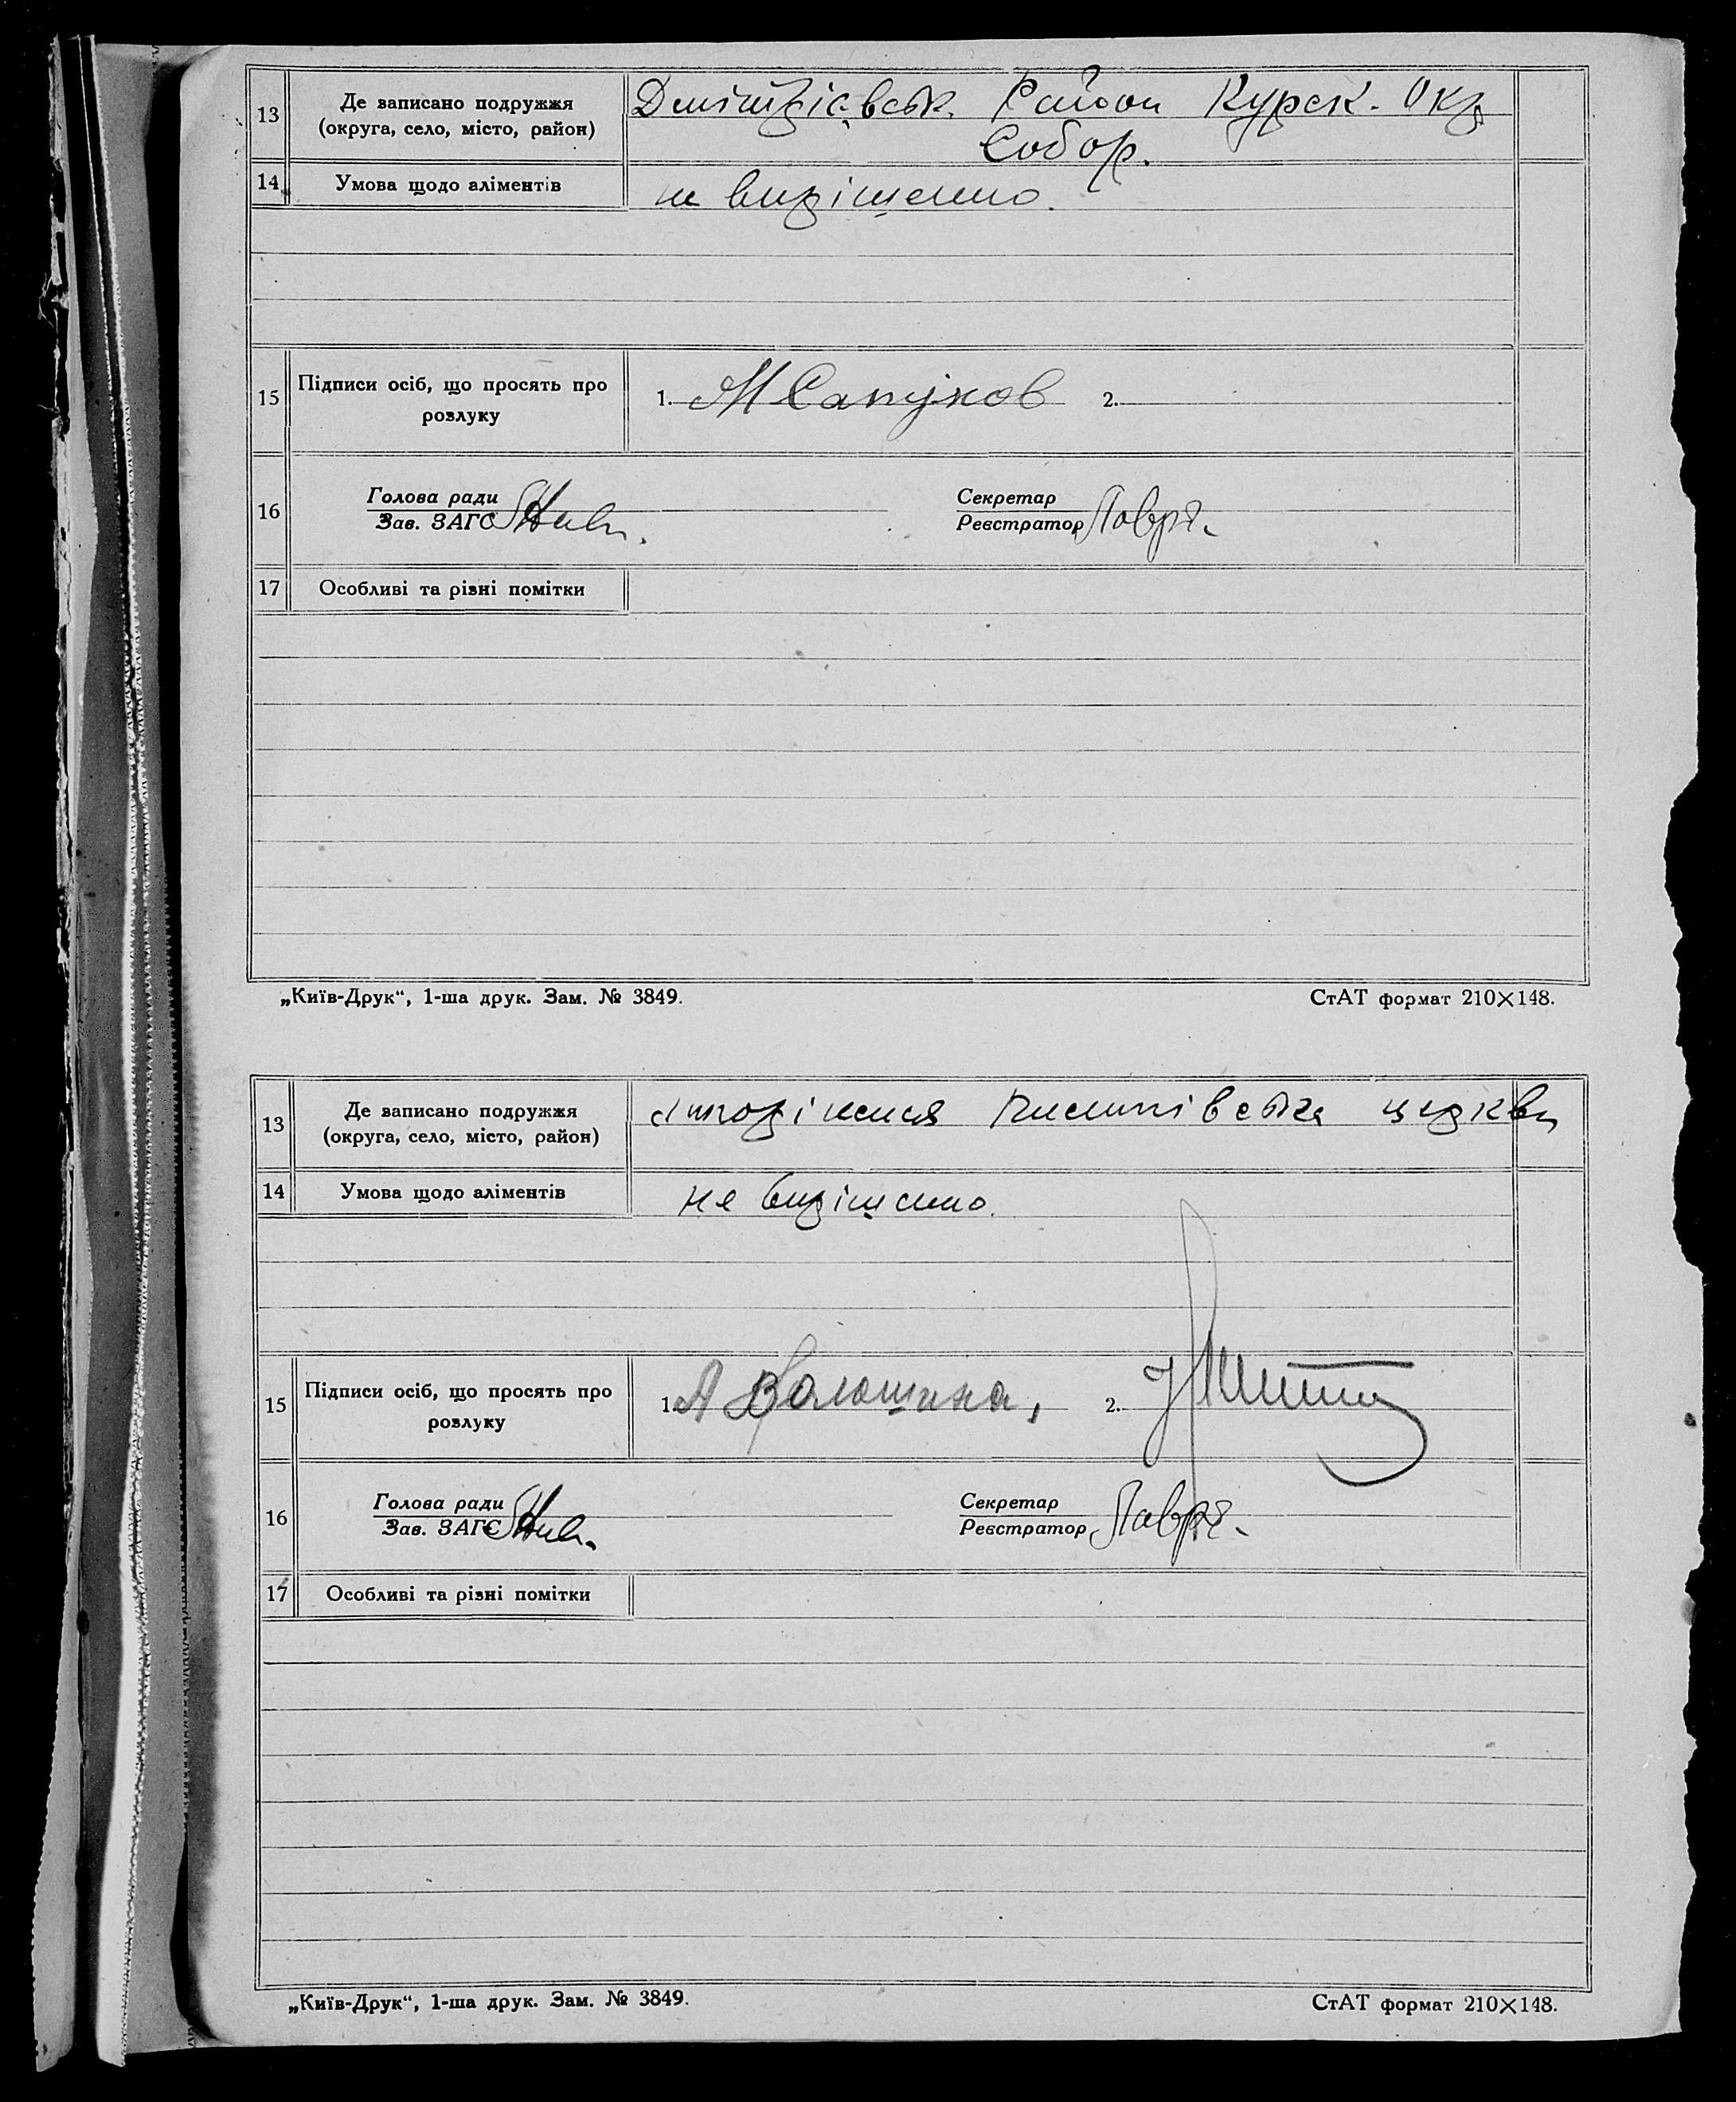 13
Де записано подружжя
(округа, село, місто, район)
Дмітрієвськ. Район Курск. Окр
Собор.
14
Умова щодо аліментів
не вирішено.
15
Підписи осіб, що просять про
розлуку
1. М Сапунов 2.
16
Голова ради
Зав. ЗАГС
Секретар
Реєстратор
17
Особливі та різні помітки
„Київ-Друк“, 1-ша друк. Зам. № 3849.
СтАТ формат 210×148.
13
Де записано подружжя
(округа, село, місто, район)
церкви
14
Умова щодо аліментів
не вирішено.
15
Підписи осіб, що просять про
розлуку
1. А Волошина, 2.
16
Голова ради
Зав. ЗАГС
Секретар
Реєстратор
17
Особливі та різні помітки
„Київ-Друк“, 1-ша друк. Зам. № 3849.
СтАТ формат 210×148.